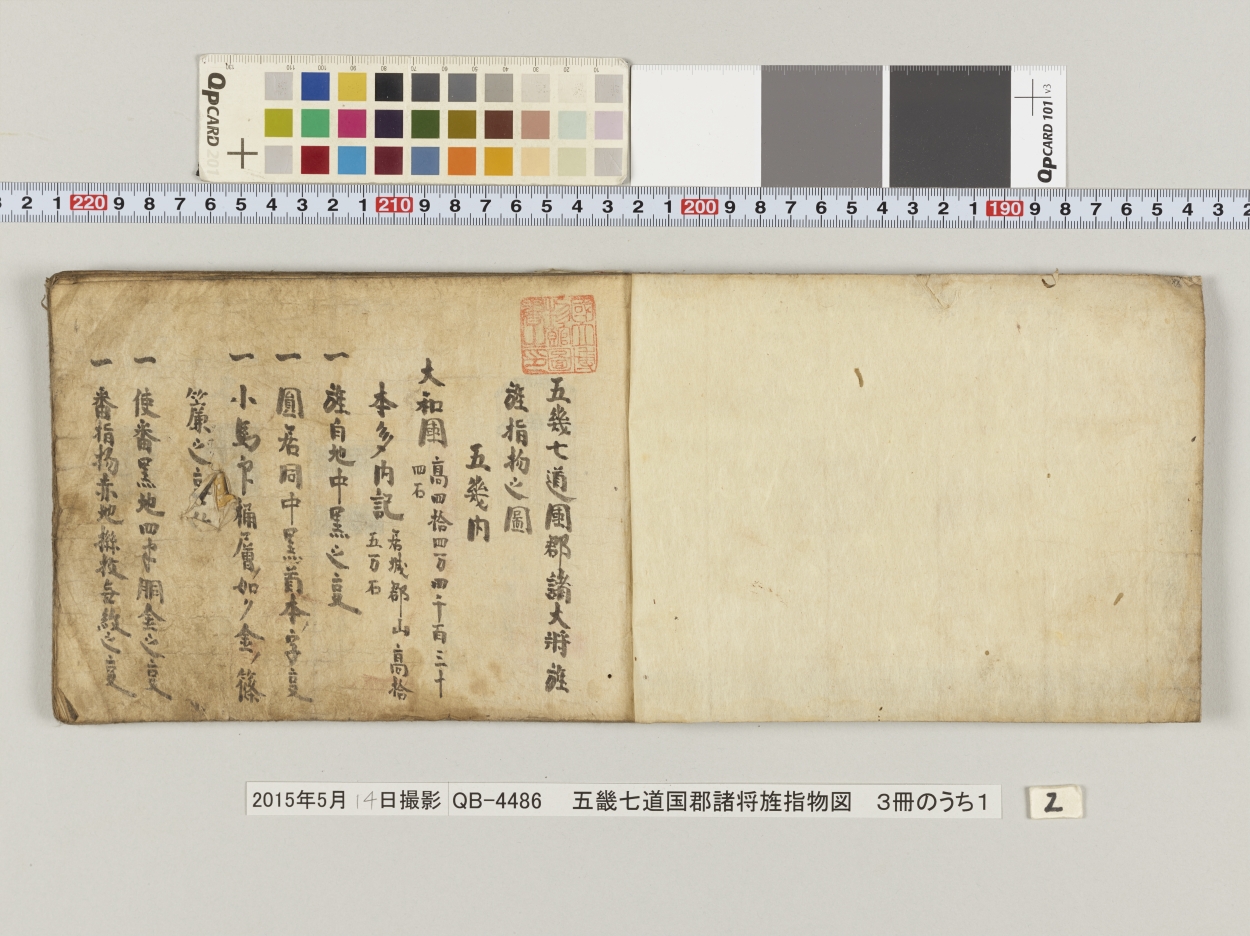 QPCARD 201
QPCARD 101 v3
2 1 220 9 8 7 6 5 4 3 2 1 210 9 8 7 6 5 4 3 2 1 200 9 8 7 6 5 4 3 2 1 190 9 8 7 6 5 4 3 2
五幾七道圍郡諸大将旌
旌指物之圖
五幾内
大和圍 高四拾四万四千百三十
四石
本多内記 居城郡山 高拾
五万石
一 旌白地中黒之夏
一 圓居同中黒前本字夏
一 小馬印 桶層如ク金ノ篠
簾之
一 使番黒地四半胴金之夏
一 番指物赤地撓枝無紋之夏
2015年5月14日撮影 QB-4486 五畿七道国郡諸将旌指物図 3冊のうち1
2